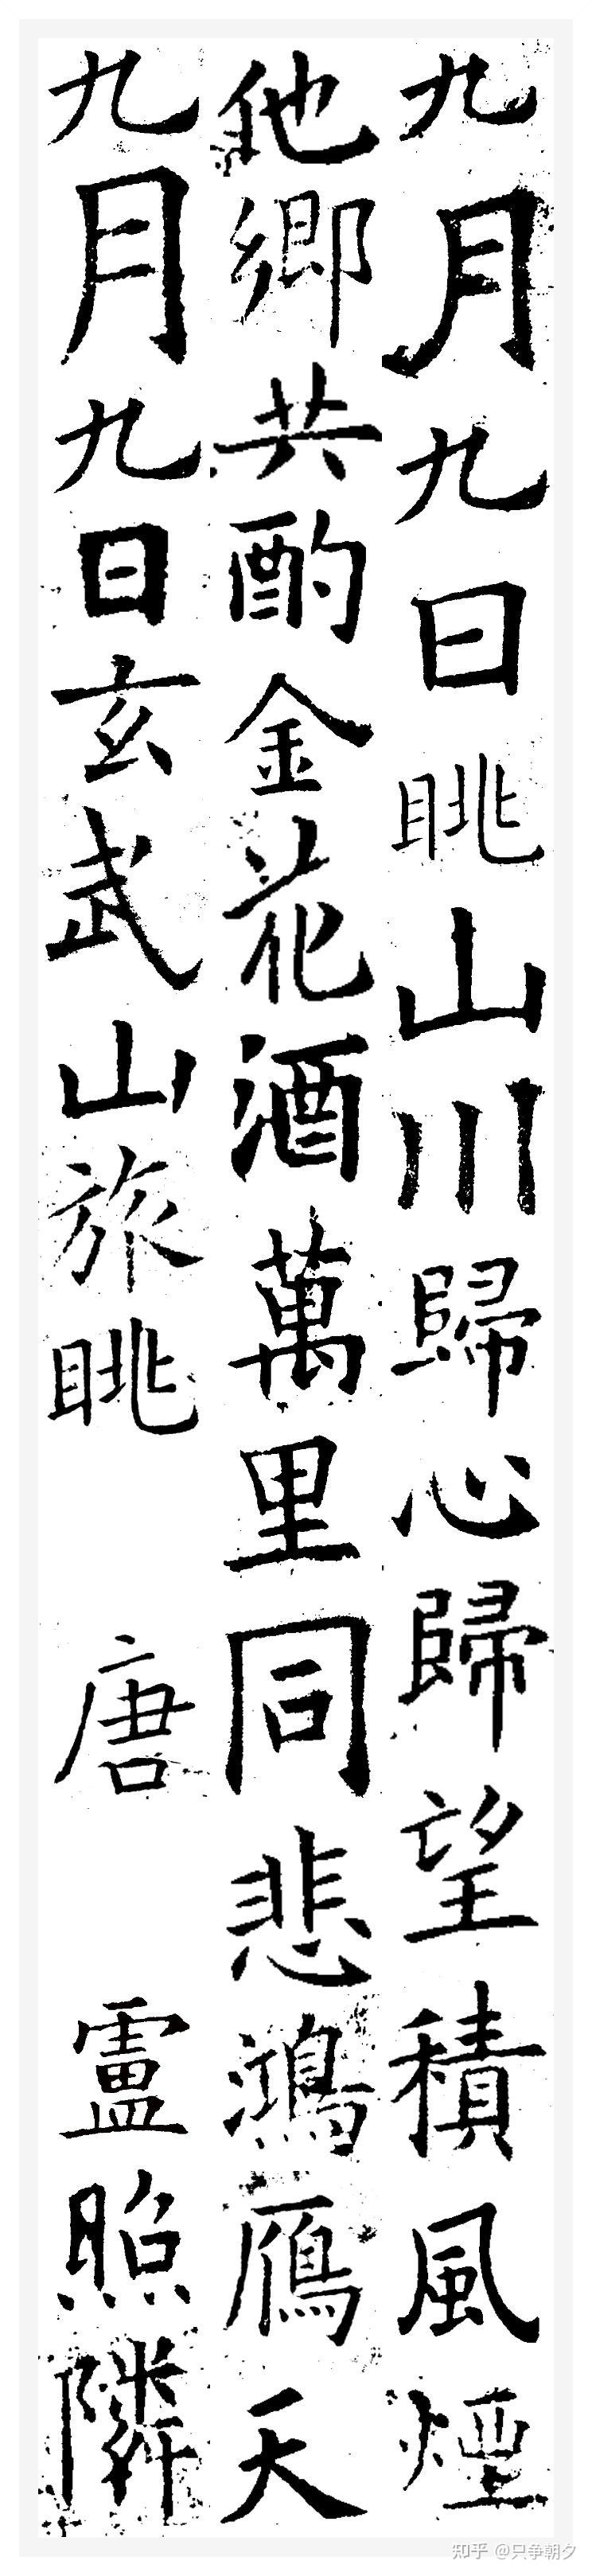 九月九日眺山川歸心歸望積風煙
他鄉共酌金花酒萬里同悲鴻鴈天
九月九日玄武山旅眺 唐 盧照隣
知乎 @只争朝夕